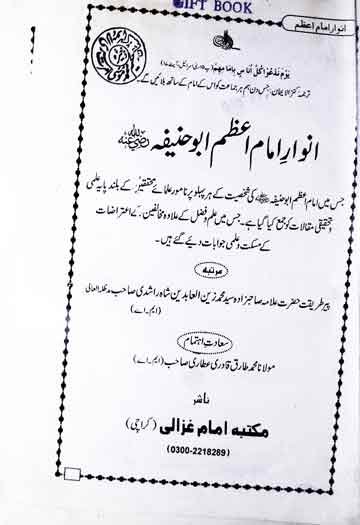 GIFT BOOK
انوار امام اعظم
یَوْمَ نَدْعُوْا کُلَّ اُنَاسٍ بِاِمَامِہِمْ
ترجمہ کنز الایمان: جس دن ہم ہر جماعت کو اس کے امام کے ساتھ بلائیں گے۔
انوارِ امام اعظم ابو حنیفہ رضی اللہ عنہ
جس میں امام اعظم ابو حنیفہ کی شخصیت کے ہر پہلو پر نامور علمائے محققین کے بلند پایہ علمی
و تحقیقی مقالات کو جمع کیا گیا ہے۔ جس میں علم و فضل کے علاوہ مخالفین کے اعتراضات
کے مسکت و علمی جوابات دیئے گئے ہیں۔
مرتبہ
پیر طریقت حضرت علامہ صاحبزادہ سید محمد زین العابدین شاہ راشدی صاحب مدظلہ العالی
(ایم۔اے)
سعادتِ اہتمام
مولانا محمد طارق قادری عطاری صاحب (ایم۔اے)
ناشر
مکتبہ امام غزالی (کراچی)
(0300-2218289)